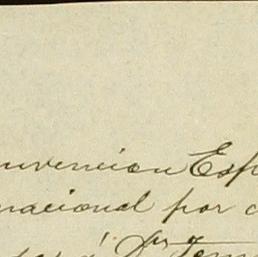 nvencion Esp
nacional por
á Dr.